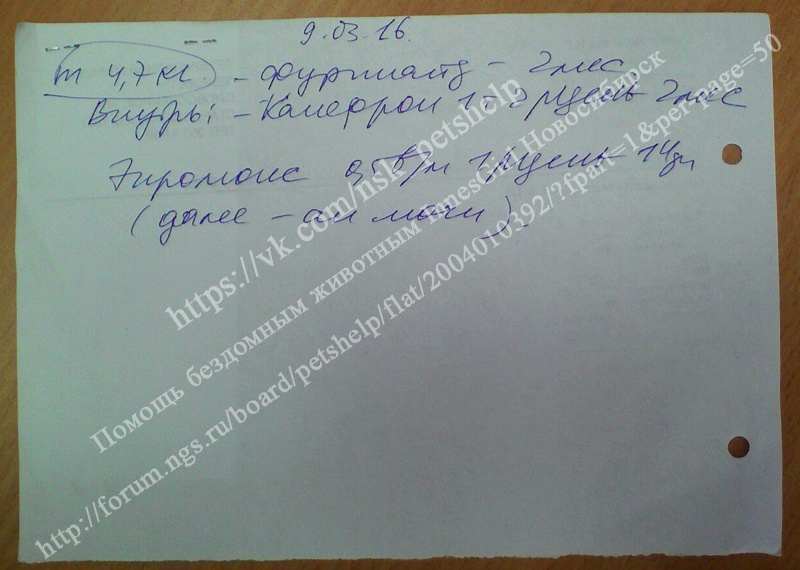 9.03.16.
m 4,7 кг - фуринайд - 2 мес
Внутрь: - Канефрон 1т 2 р/день 2 мес
0,5 в/м 1 р/день 14 дн
(далее - ан мочи).
https://vk.com/nsk_petshelp
Помощь бездомным животным Новосибирск
http://forum.ngs.ru/board/petshelp/flat/2004010392/?fpart=1&per-page=50